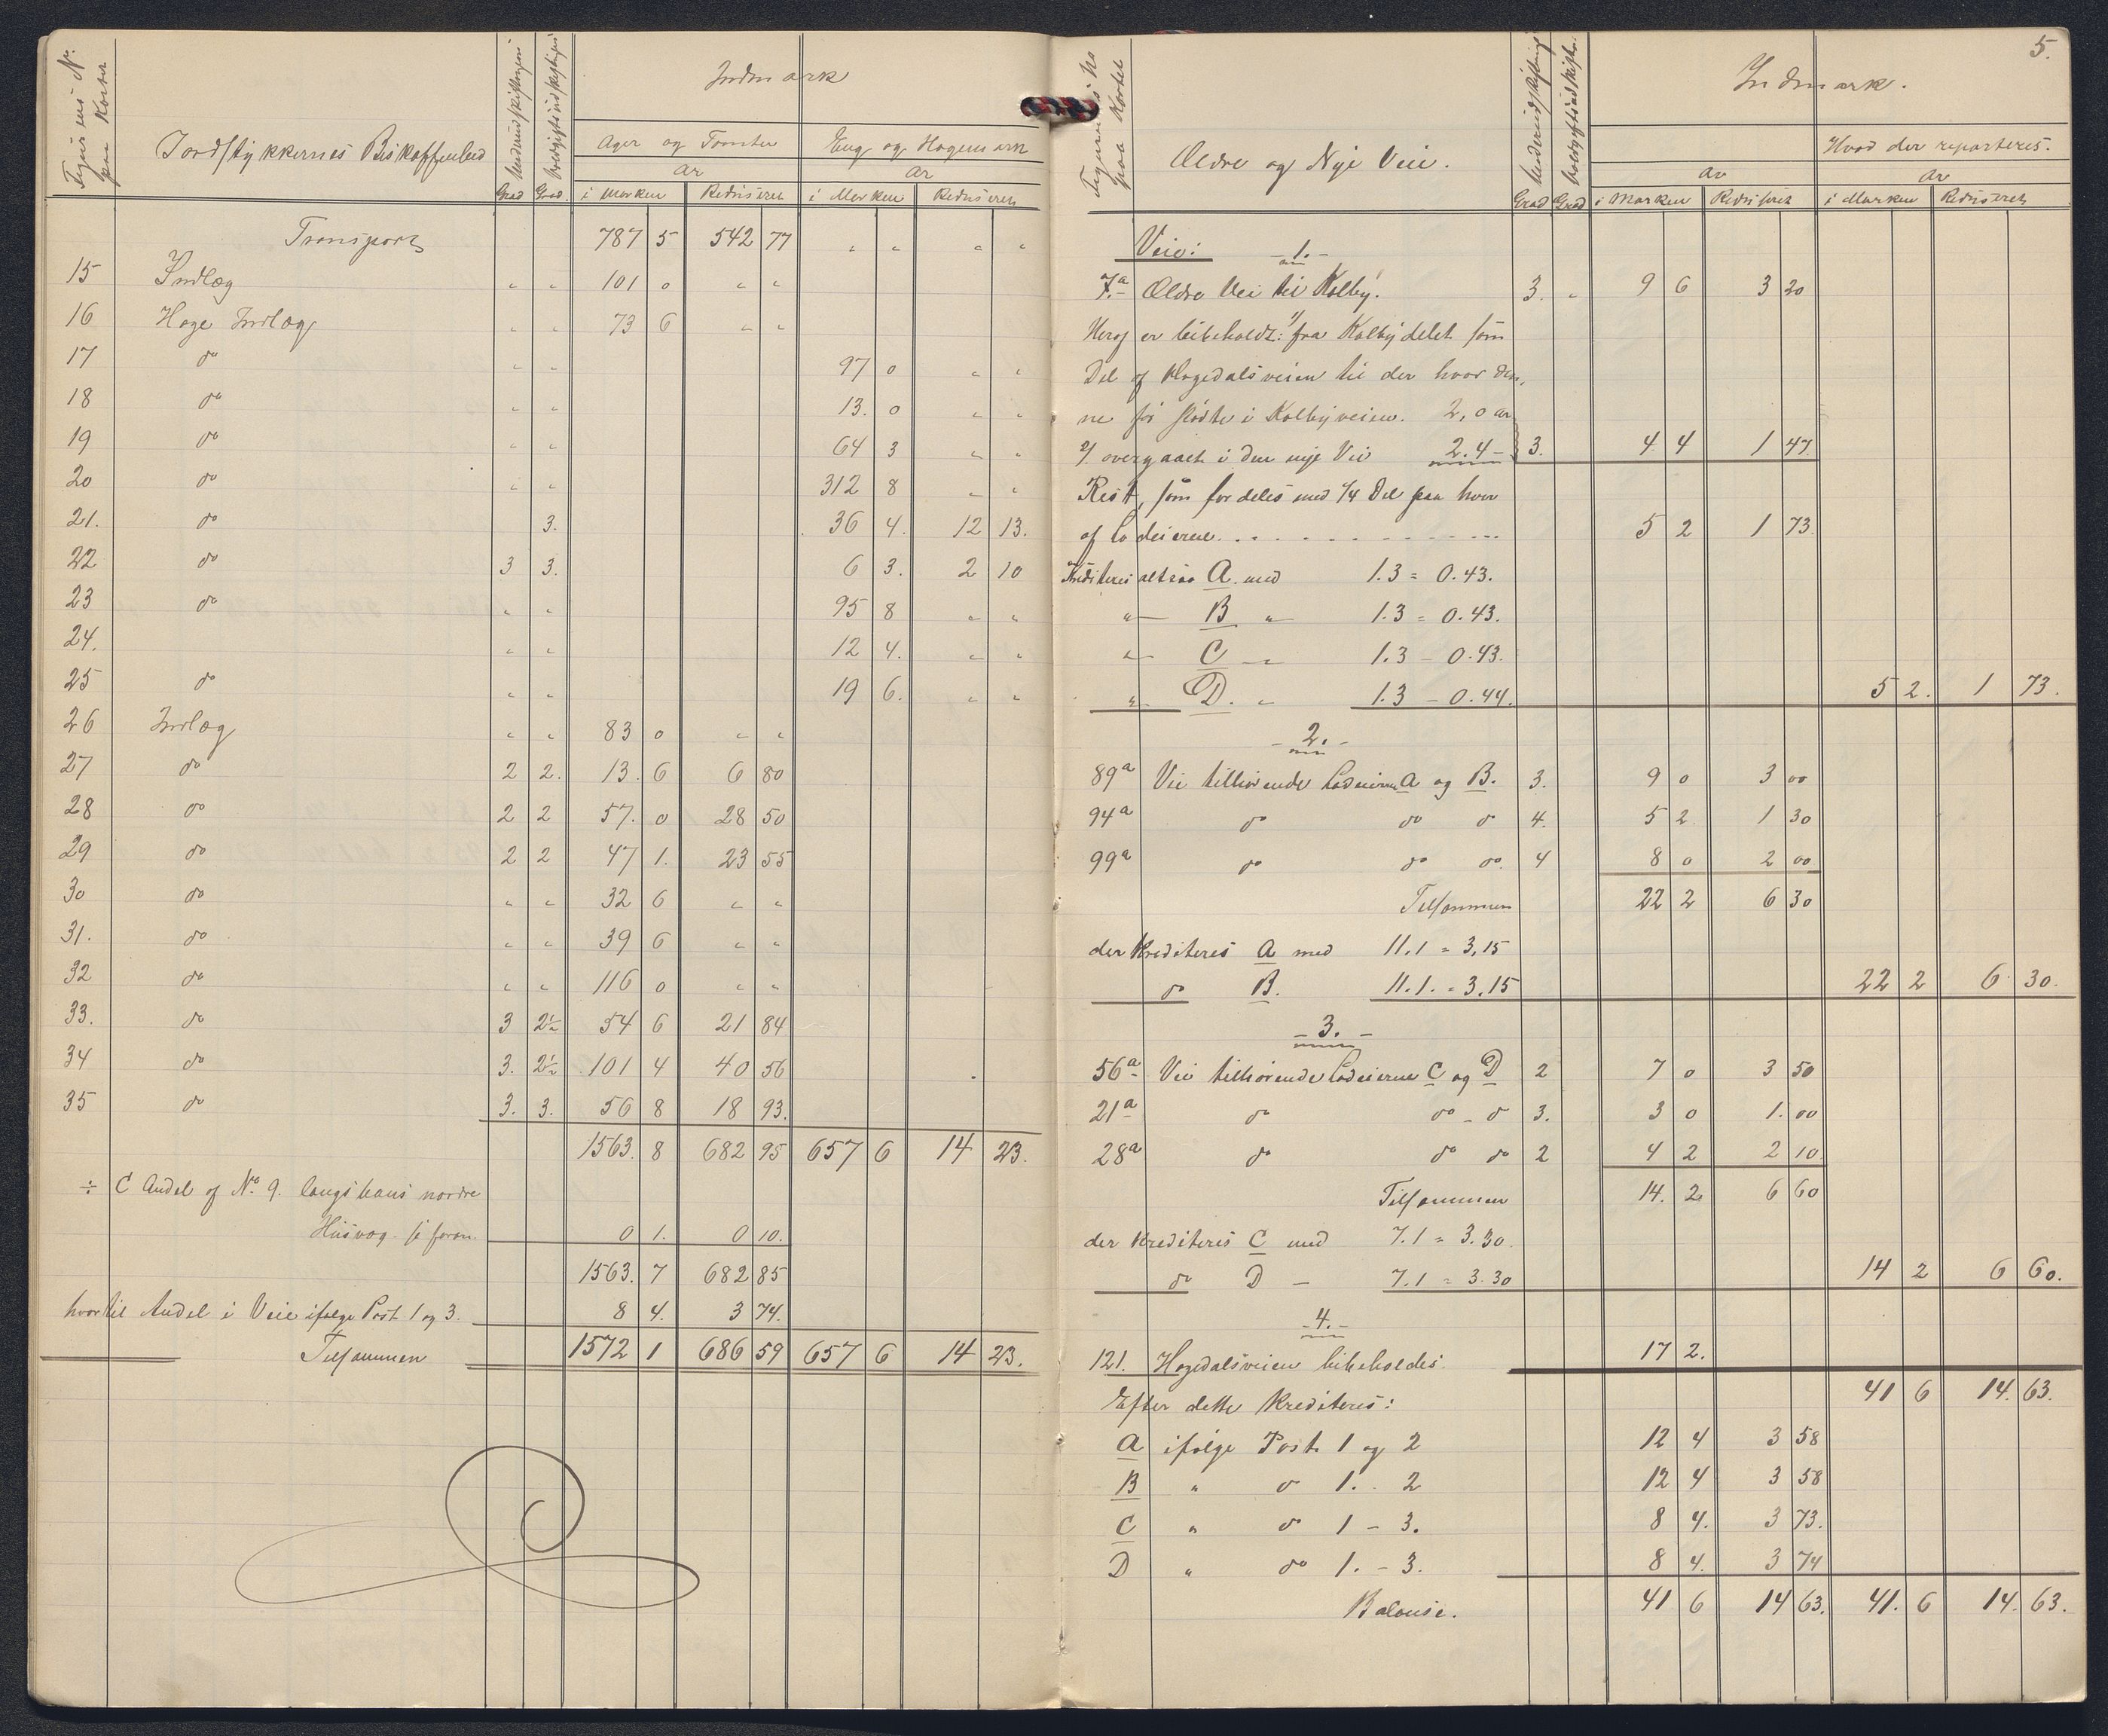 Figurens No. paa Kartet
Jordstykkernes Beskaffenhed
Grad
Grad.
Indmark
Ager og Tomter
Eng og Hagemark
Ar
Ar
i Marken Reduseret i Marken Reduseret
Transport 787 5 542 77 " " " "
15 Indlæg " " 101 0 " "
16 Hage Indlæg " " 73 6 " "
17 do " " 97 0 " "
18 do " " 13. 0 " "
19 do " " 64 3 " "
20 do " " 312 8 " "
21. do 3. 36 4. 12 13.
22 do 3 3. 6 3. 2 10
23 do " " 95 8 " "
24. " " 12 4. " "
25 do " " 19 6. " "
26 Indlæg " " 83 0 " "
27 do 2 2. 13. 6 6 80
28 do 2 2 57. 0 28 50
29 do 2 2 47 1. 23 55
30 do " " 32 6 " "
31. do " " 39 6 " "
32 do " " 116 0 " "
33. do 3 2½ 54 6 21 84
34 do 3. 2½ 101 4 40 56
35 do 3. 3. 56 8 18 93.
1563. 8 682 95 657 6 14 23.
÷ C Andel of No. 9. langs hans nordre
Husvæg se foran. 0 1. 0 10.
1563. 7 682 85
hvortil Andel i Veie ifølge Post 1 og 3. 8 4. 3 74.
Tilsammen 1572 1 686 59 657 6 14 23.
5.
Figurens No paa Kartet
Ældre og Nye Veie.
Grad Grad
Indmark.
Hvad der reparteres.
Ar
Ar
i Marken Reduseret i Marken Reduseret
Veie: -1.-
7.a Ældre Vei til Kolby. 3. " 9 6 3 20
Heraf er bibeholdt: 1/ fra Kolbydelet som
Del af Hagedalsveien til der hvor den-
ne før stødte i Kolbyveien. 2,0 ar
2/ overgaaet i den nye Vei 2.4 - 3. 4 4 1 47.
Rest, som fordeles med 1/4 Del paa hver
af Lodeierne. . . . . . . . . . 5 2 1 73.
Krediteres altsaa A. med 1.3 = 0.43.
"— B " — 1.3 = 0.43.
"— C — " 1.3 - 0.43.
" D. " 1.3 - 0.44. 5 2. 1 73.
-2.-
89a Vei tilhørende Lodeierne A og B. 3. 9 0 3 00
94a do do do 4. 5 2 1 30
99a do do do. 4 8 0 2 00
Tilsammen 22 2 6 30
der krediteres A med 11.1 = 3,15
do B. 11.1. = 3,15 22 2 6 30.
-3.-
56a Vei tilhørende Lodeierne C og D 2 7 0 3 50
21a do do - do 3. 3 0 1. 00
28a do do do 2 4 2 2 10.
Tilsammen 14. 2 6 60
der krediteres C med 7.1 = 3.30.
do D — 7.1 = 3.30 14 2 6 60.
-4.-
121. Hagedalsveien bibeholdes. 17 2.
41 6 14. 63.
Efter dette krediteres:
A ifølge Post 1 og 2 12 4 3 58
B " do 1. . 2 12 4 3 58
C " do 1 - 3. 8 4. 3 73.
D " do 1. - 3. 8 4. 3 74
Balanse. 41 6 14 63. 41. 6 14. 63.